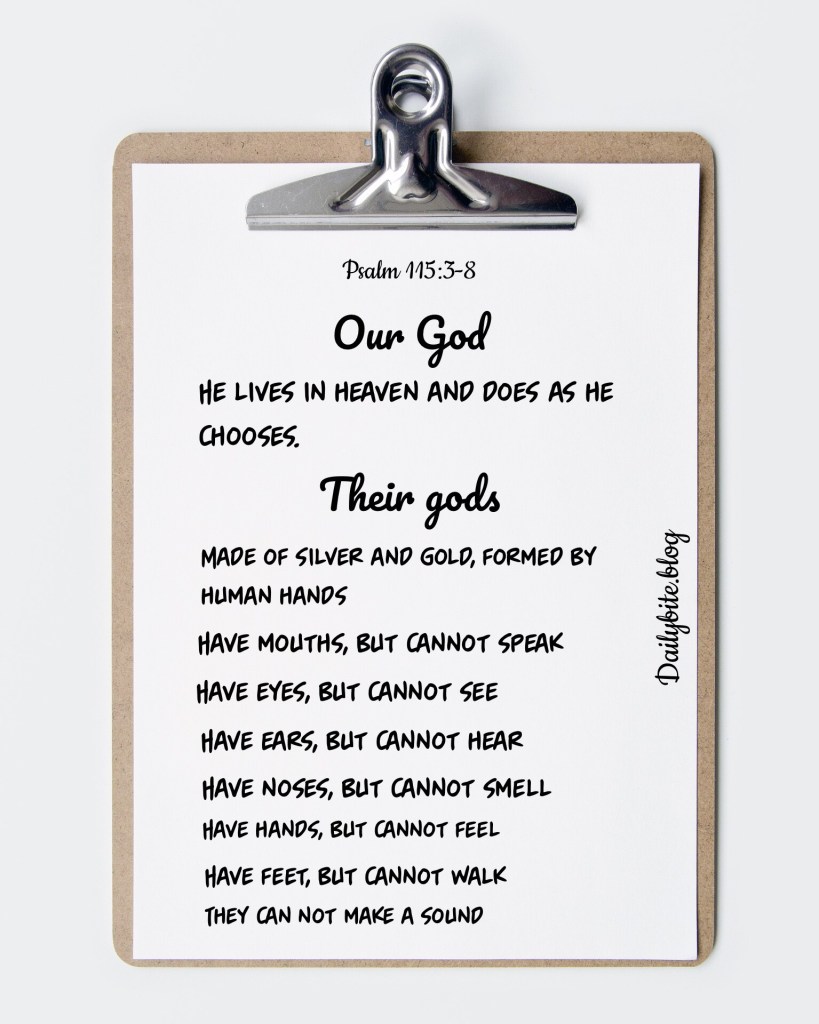 Psalm 115:3-8
Our God
HE LIVES IN HEAVEN AND DOES AS HE
CHOOSES.
Their gods
MADE OF SILVER AND GOLD, FORMED BY
HUMAN HANDS
HAVE MOUTHS, BUT CANNOT SPEAK
HAVE EYES, BUT CANNOT SEE
HAVE EARS, BUT CANNOT HEAR
HAVE NOSES, BUT CANNOT SMELL
HAVE HANDS, BUT CANNOT FEEL
HAVE FEET, BUT CANNOT WALK
THEY CAN NOT MAKE A SOUND
Dailybite.blog